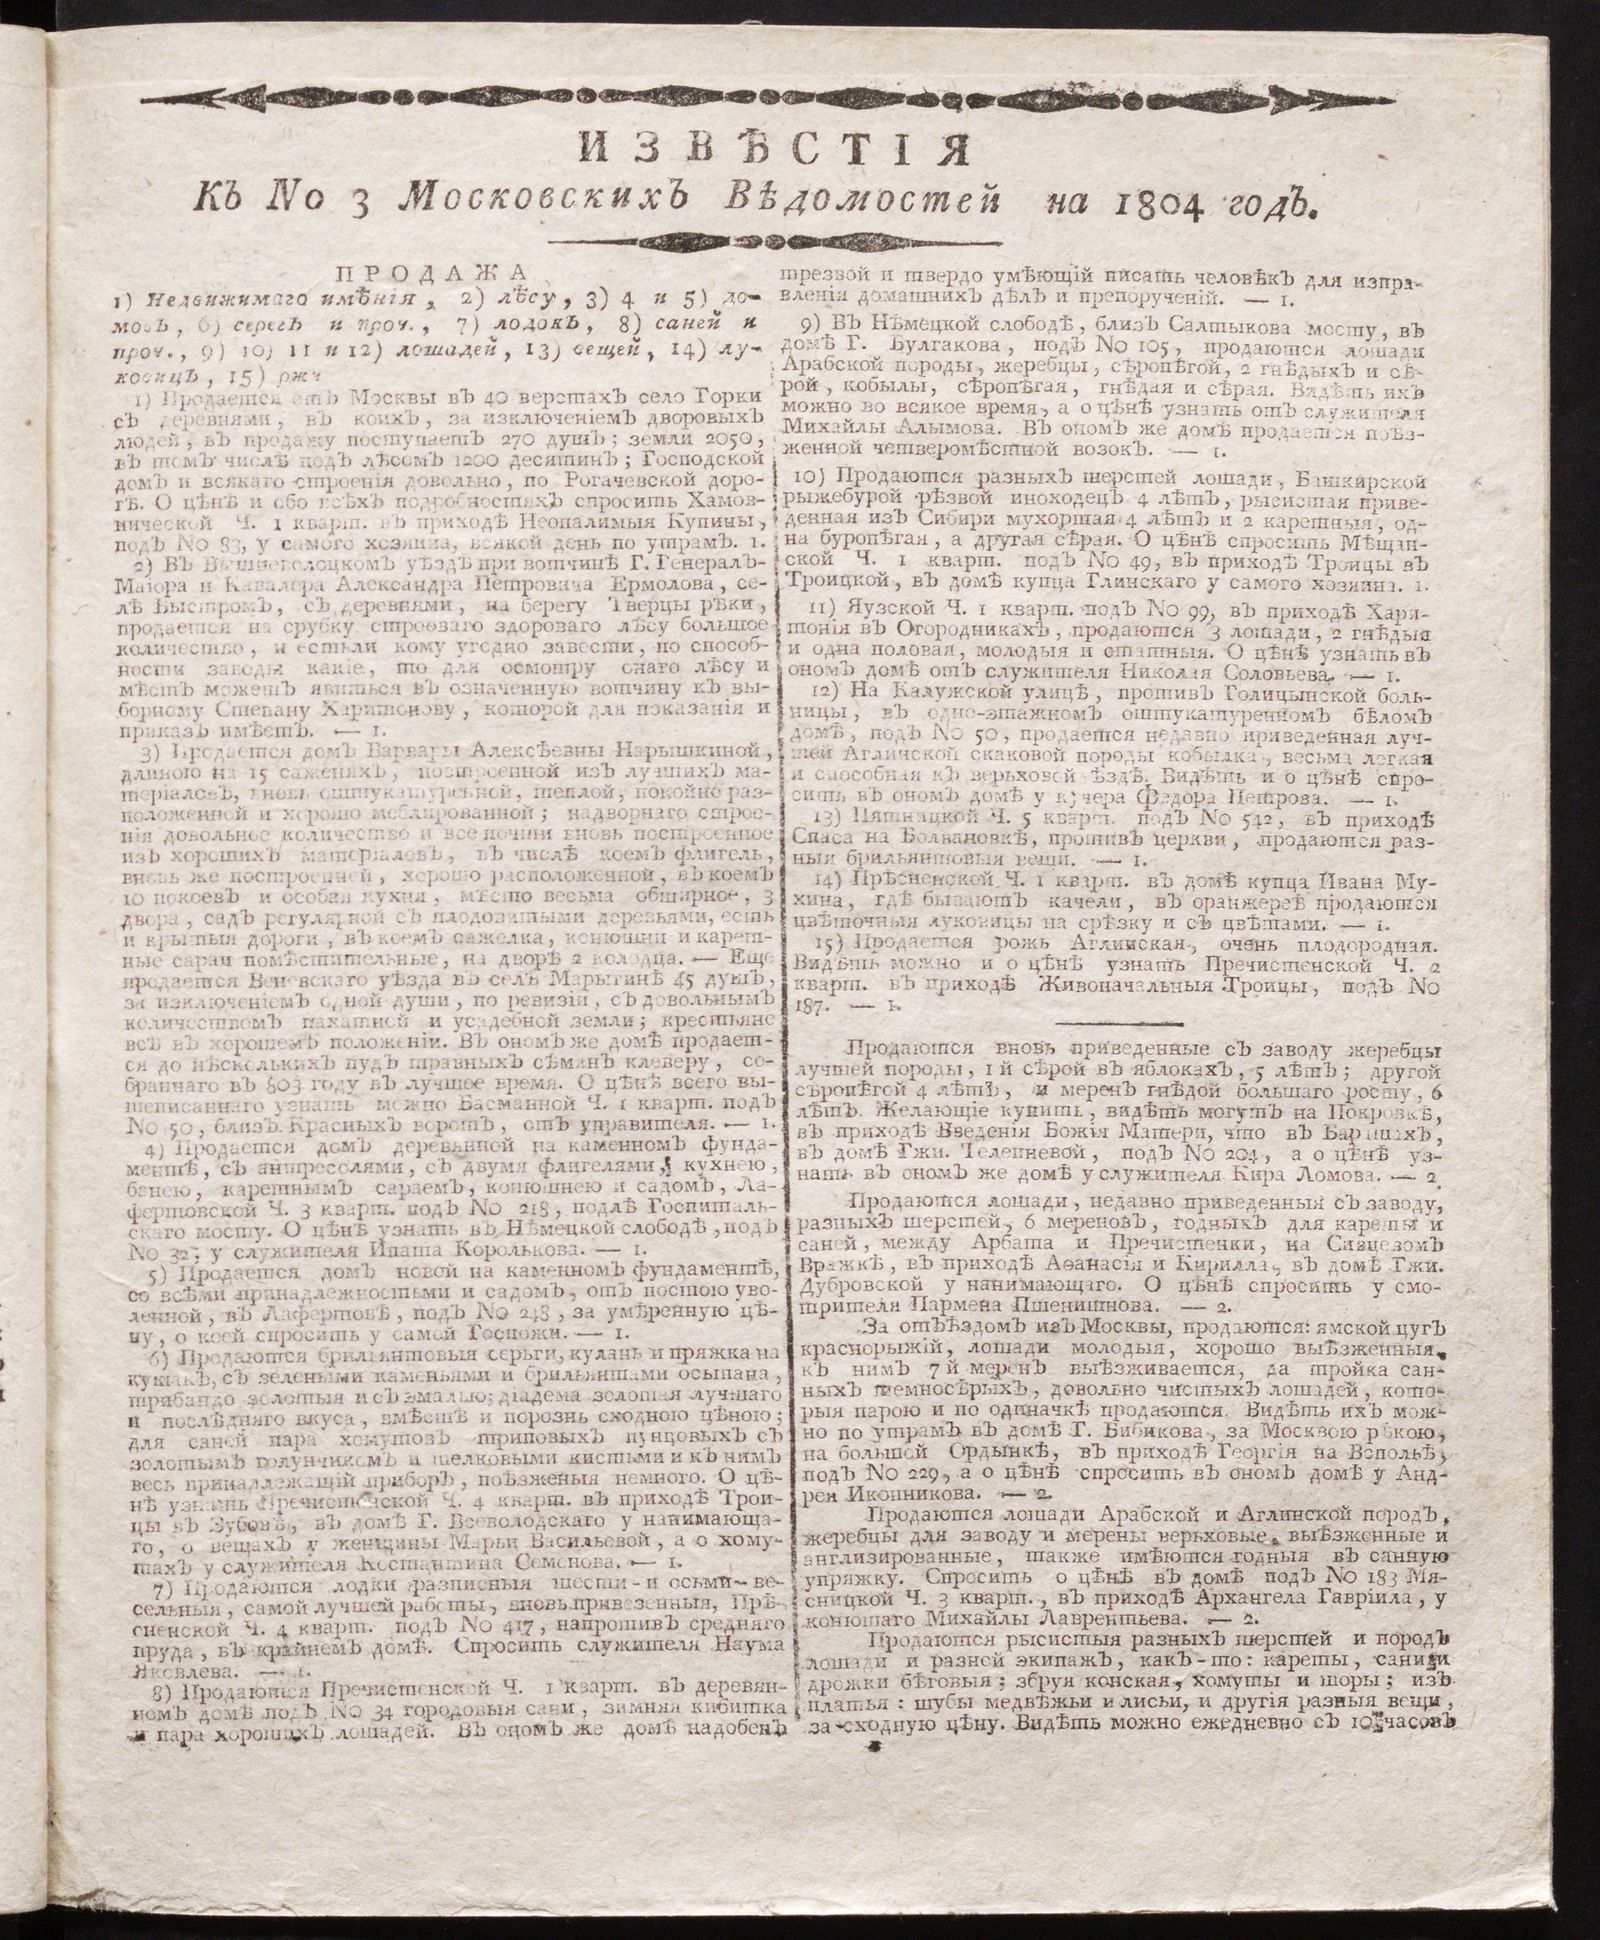 ИЗВѢСТІЯ
Къ No 3 Московскихъ Вѣдомостей на 1804 годъ.
ПРОДАЖА
1) Недвижимаго имѣнія, 2) лѣсу, 3) 4 и 5) до-
мовъ, 6) серегъ и проч., 7) лодокъ, 8) саней и
проч., 9) 10) 11 и 12) лошадей, 13) вещей, 14) лу-
ковицъ, 15) ржи
1) Продается отъ Москвы въ 40 верстахъ село Горки
съ деревнями, въ коихъ, за изключеніемъ дворовыхъ
людей, въ продажу поступаетъ 270 душъ; земли 2050,
въ томъ числѣ подъ лѣсомъ 1200 десятинъ; Господской
домъ и всякаго строенія довольно, по Рогачевской доро-
гѣ. О цѣнѣ и обо всѣхъ подробностяхъ спросить Хамов-
нической Ч. 1 кварт. въ приходѣ Неопалимыя Купины,
подъ No 83, у самого хозяина, всякой день по утрам. 1.
2) Въ Вышневолоцкомъ уѣздѣ при вотчинѣ Г. Генералъ-
Маіора и Кавалера Александра Петровича Ермолова, се-
лѣ Быстромъ, съ деревнями, на берегу Тверцы рѣки,
продается на срубку строеваго здороваго лѣсу большое
количество, и естьли кому угодно завести, по способ-
ности заводы какіе, то для осмотру онаго лѣсу и
мѣстъ можетъ явиться въ означенную вотчину къ вы-
борному Степану Харитонову, которой для показанія и
приказъ имѣетъ. — 1.
3) Продается домъ Варвары Алексѣевны Нарышкиной,
длиною на 15 саженяхъ, построенной изъ лучшихъ ма-
теріаловъ, вновь оштукатуренной, теплой, покойно раз-
положенной и хорошо меблированной; надворнаго строе-
нія довольное количество и все почти вновь построенное
изъ хорошихъ матеріаловъ, въ числѣ коемъ флигель,
вновь же построенней, хорошо расположенной, въ коемъ
10 покоевъ и особая кухня, мѣсто весьма обширное, 3
двора, садъ регулярной съ плодовитыми деревьями, есть
и крытыя дороги, въ коемъ сажелка, конюшни и карет-
ные сараи помѣстительные, на дворѣ 2 колодца. — Еще
продается Веневскаго уѣзда въ селѣ Марыгинѣ 45 душъ,
за изключеніемъ одной души, по ревизіи, съ довольнымъ
количествомъ пахатной и усадебной земли; крестьяне
всѣ въ хорошемъ положеніи. Въ ономъ же домѣ продает-
ся до нѣсколькихъ пудъ травныхъ сѣмянъ клеверу, со-
браннаго въ 803 году въ лучшее время. О цѣнѣ всего вы-
шеписаннаго узнать можно Басманной Ч. 1 кварт. подъ
No 50, близъ Красныхъ воротъ, отъ управителя. — 1.
4) Продается домъ деревянной на каменномъ фунда-
ментѣ, съ антресолями, съ двумя флигелями, кухнею,
банею, каретнымъ сараемъ, конюшнею и садомъ, Ла-
фертовской Ч. 3 кварт. подъ No 218, подлѣ Госпиталь-
скаго мосту. О цѣнѣ узнать въ Нѣмецкой слободѣ, подъ
No 32; у служителя Ипата Королькова. — 1.
5) Продается домъ новой на каменномъ фундаментѣ,
со всѣми принадлежностьми и садомъ, отъ постою уво-
ленной, въ Лафертовѣ, подъ No 248, за умѣренную цѣ-
ну, о коей спросить у самой Госпожи. — 1.
6) Продаются брилліянтовыя серьги, кулань и пряжка на
кушакъ, съ зелеными каменьями и брильянтами осыпана,
трабандо золотыя и съ эмалью; діадема золотая лучшаго
и послѣдняго вкуса, вмѣстѣ и порознь сходною цѣною;
для саней пара хомутовъ триповыхъ пунцовыхъ съ
золотымъ голунчикомъ и шелковыми кистьми и къ нимъ
весь принадлежащій приборъ, поѣзженыя немного. О цѣ-
нѣ узнать Пречистенской Ч. 4 кварт. въ приходѣ Трои-
цы въ Зубовѣ, въ домѣ Г. Всеволодскаго у нанимающа-
го, о вещахъ у женщины Марьи Васильевой, а о хому-
тахъ у служителя Костантина Семенова. — 1.
7) Продаются лодки разписныя шести- и осьми-ве-
сельныя, самой лучшей работы, вновь привезенныя, Прѣ-
сненской Ч. 4 кварт. подъ No 417, напротивъ средняго
пруда, въ крайнемъ домѣ. Спросить служителя Наума
Яковлева. — 1.
8) Продаются Пречистенской Ч. 1 кварт. въ деревян-
номъ домѣ подъ No 34 городовыя сани, зимняя кибитка
и пара хорошихъ лошадей. Въ ономъ же домѣ надобенъ
трезвой и твердо умѣющій писать человѣкъ для изпра-
вленія домашнихъ дѣлъ и препорученій. — 1.
9) Въ Нѣмецкой слободѣ, близъ Салтыкова мосту, въ
домѣ Г. Булгакова, подъ No 105, продаются лошади
Арабской породы, жеребцы, сѣропѣгой, 2 гнѣдыхъ и сѣ-
рой, кобылы, сѣропѣгая, гнѣдая и сѣрая. Видѣть ихъ
можно во всякое время, а о цѣнѣ узнать отъ служителя
Михайлы Алымова. Въ ономъ же домѣ продается поѣз-
женной четверомѣстной возокъ. — 1.
10) Продаются разныхъ шерстей лошади, Башкирской
рыжебурой рѣзвой иноходецъ 4 лѣтъ, рысистая приве-
денная изъ Сибири мухортая 4 лѣтъ и 2 каретныя, од-
на буропѣгая, а другая сѣрая. О цѣнѣ спросить Мѣщан-
ской Ч. 1 кварт. подъ No 49, въ приходѣ Троицы въ
Троицкой, въ домѣ купца Глинскаго у самого хозяина. 1.
11) Яузской Ч. 1 кварт. подъ No 99, въ приходѣ Хари-
тонія въ Огородникахъ, продаются 3 лошади, 2 гнѣдыя
и одна половая, молодыя и статныя. О цѣнѣ узнать въ
ономъ домѣ отъ служителя Николая Соловьева. — 1.
12) На Калужской улицѣ, противъ Голицынской боль-
ницы, въ одно-этажномъ оштукатуренномъ бѣломъ
домѣ, подъ No 50, продается недавно приведенная луч-
шей Аглинской скаковой породы кобылка, весьма легкая
и способная къ верьховой ѣздѣ. Видѣть и о цѣнѣ спро-
сить въ ономъ домѣ у кучера Федора Петрова. — 1.
13) Пятницкой Ч. 5 кварт. подъ No 542, въ приходѣ
Спаса на Болвановкѣ, противъ церкви, продаются раз-
ныя брильянтовыя вещи. — 1.
14) Прѣсненской Ч. 1 кварт. въ домѣ купца Ивана Му-
хина, гдѣ бываютъ качели, въ оранжереѣ продаются
цвѣточныя луковицы на срѣзку и съ цвѣтами. — 1.
15) Продается рожь Аглинская, очень плодородная.
Видѣть можно и о цѣнѣ узнать Пречистенской Ч. 2
кварт. въ приходѣ Живоначальныя Троицы, подъ No
187. — 1.
Продаются вновь приведенные съ заводу жеребцы
лучшей породы, 1й сѣрой въ яблокахъ, 5 лѣтъ; другой
сѣропѣгой 4 лѣтъ, и меренъ гнѣдой большаго росту, 6
лѣтъ. Желающіе купить, видѣть могутъ на Покровкѣ,
въ приходѣ Введенія Божія Матери, что въ Барашахъ,
въ домѣ Гжи. Телепневой, подъ No 204, а о цѣнѣ уз-
нать въ ономъ же домѣ у служителя Кира Ломова. — 2
Продаются лошади, недавно приведенныя съ заводу,
разныхъ шерстей, 6 мереновъ, годныхъ для кареты и
саней, между Арбата и Пречистенки, на Сивцевомъ
Вражкѣ, въ приходѣ Аѳанасія и Кирилла, въ домѣ Гжи.
Дубровской у нанимающаго. О цѣнѣ спросить у смо-
трителя Пармена Пшенишнова. — 2.
За отъѣздомъ изъ Москвы, продаются: ямской цугъ
краснорыжій, лошади молодыя, хорошо выѣзженныя,
къ нимъ 7й меренъ выѣзживается, да тройка сан-
ныхъ темносѣрыхъ, довольно чистыхъ лошадей, кото-
рыя парою и по одиначкѣ продаются. Видѣть ихъ мож-
но по утрамъ въ домѣ Г. Бибикова, за Москвою рѣкою,
на большой Ордынкѣ, въ приходѣ Георгія на Вспольѣ,
подъ No 229, а о цѣнѣ спросить въ ономъ домѣ у Анд-
рея Иконникова. — 2.
Продаются лошади Арабской и Аглинской породъ,
жеребцы для заводу и мерены верьховые, выѣзженные и
англизированные, также имѣются годныя въ санную
упряжку. Спросить о цѣнѣ въ домѣ подъ No 183 Мя-
сницкой Ч. 3 кварт., въ приходѣ Архангела Гавріила, у
конюшаго Михайлы Лаврентьева. — 2.
Продаются рысистыя разныхъ шерстей и породъ
лошади и разной экипажъ, какъ-то: кареты, сани и
дрожки бѣговыя; збруя конская, хомуты и шоры; изъ
платья: шубы медвѣжьи и лисьи, и другія разныя вещи,
за сходную цѣну. Видѣть можно ежедневно съ 10 часовъ